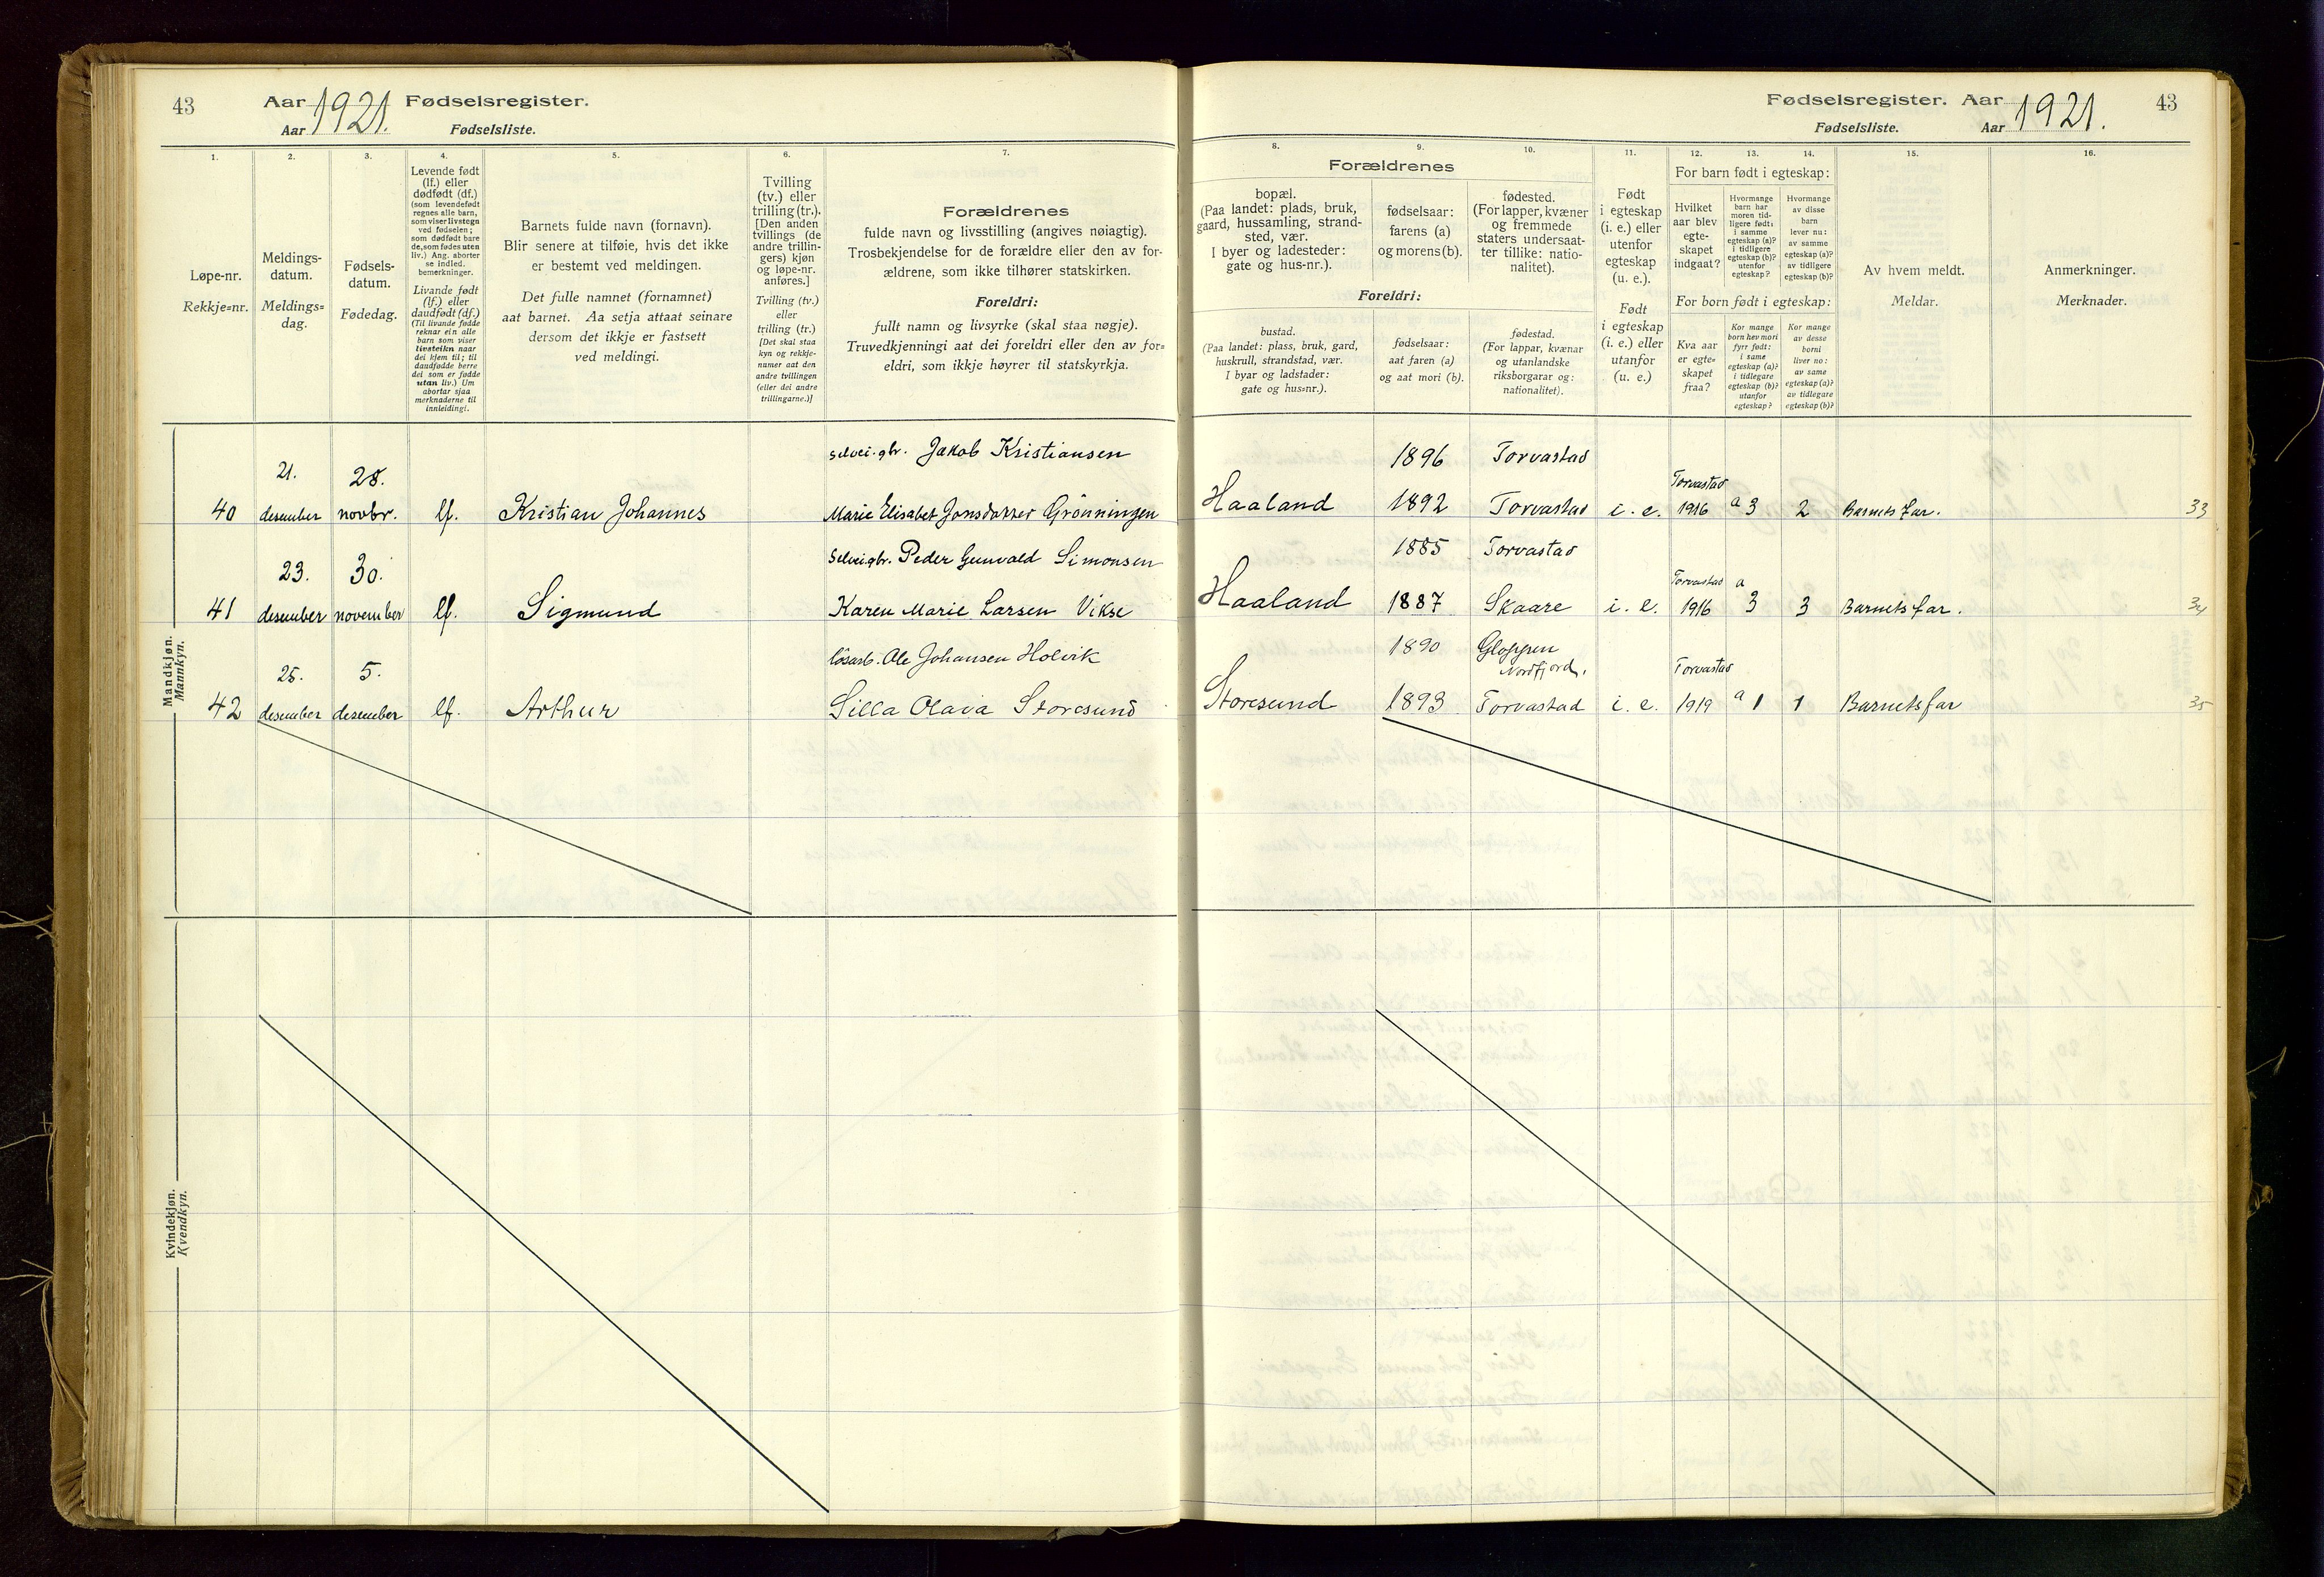 43
Aar 1921. Fødselsregister.
Aar
Fødselsliste.
Fødselsregister. Aar 1921.
43
Fødselsliste.
Aar
1.
2.
3.
4.
5.
6.
7.
8.
9.
10.
11.
12.
13.
14.
15.
16.
Løpe-nr.
Rekkje=nr.
Meldings-
datum.
Meldings=
dag.
Fødsels-
datum.
Fødedag.
Levende født
(lf.) eller
dødfødt (df.)
(som levendefødt
regnes alle barn,
som viser livstegn
ved fødselen;
som dødfødt bare
de, som fødes uten
liv.) Ang. aborter
se indled.
bemerkninger.
Livande født
(lf.) eller
daudfødt (df.)
(Til livande fødde
reknar ein alle
barn som viser
livsteikn naar
dei kjem til; til
daudfødde berre
dei som er fødde
utan liv.) Um
abortar sjaa
merknaderne til
innleidingi.
Barnets fulde navn (fornavn).
Blir senere at tilføie, hvis det ikke
er bestemt ved meldingen.
Det fulle namnet (fornamnet)
aat barnet. Aa setja attaat seinare
dersom det ikkje er fastsett
ved meldingi.
Tvilling
(tv.) eller
trilling (tr.).
[Den anden
tvillings (de
andre trillin-
gers) kjøn
og løpe-nr.
anføres.]
Tvilling (tv.)
eller
trilling (tr.)
[Det skal staa
kyn og rekkje-
numer aat den
andre tvillingen
(eller dei andre
trillingarne.)]
Forældrenes
fulde navn og livsstilling (angives nøiagtig).
Trosbekjendelse for de forældre eller den av for-
ældrene, som ikke tilhører statskirken.
Foreldri:
fullt namn og livsyrke (skal staa nøgje).
Truvedkjenningi aat dei foreldri eller den av for=
eldri, som ikkje høyrer til statskyrkja.
Forældrenes
bopæl.
(Paa landet: plads, bruk,
gaard, hussamling, strand-
sted, vær.
I byer og ladesteder:
gate og hus-nr.).
fødselsaar:
farens (a)
og morens (b).
fødested.
(For lapper, kvæner
og fremmede
staters undersaat-
ter tillike: natio-
nalitet).
Foreldri:
bustad.
(Paa landet: plass, bruk, gard,
huskrull, strandstad, vær.
I byar og ladstader:
gate og hus=nr.).
fødselsaar:
aat faren (a)
og aat mori (b).
fødestad.
(For lappar, kvænar
og utanlandske
riksborgarar og:
nationalitet).
Født
i egteskap
(i. e.) eller
utenfor
egteskap
(u. e.).
Født
i egteskap
(i. e.) eller
utanfor
(u. e.)
For barn født i egteskap:
Hvilket
aar blev
egte-
skapet
indgaat?
Hvormange
barn har
moren tid-
ligere født:
i samme
egteskap (a)?
i tidligere
egteskap (b)?
utenfor
egteskap?
Hvormange
av disse
barn
lever nu:
av samme
egteskap (a)?
av tidligere
egteskap (b)?
For born født i egteskap:
Kva aar
er egte=
skapet
fraa?
Kor mange
born hev mori
fyrr født:
i same
egteskap (a)?
i tidlegare
egteskap (b)?
utanfor
egteskap?
Kor mange
av desse
borni
liver no:
av same
egteskap (a)?
av tidlegare
egteskap (b)?
Av hvem meldt.
Meldar.
Anmerkninger.
Merknader.
Mandkjøn.
Mannkyn.
21. 28. selvei.gbr. Jakob Kristiansen 1896 Torvastad
40 desember novbr. lf. Kristian Johannes Marie Elisabet Jonsdatter Grönningen Haaland 1892 Torvastad i. e. Torvastad 1916 a 3 2 Barnets far. 33
23. 30. Selveigbr. Peder Gunvald Simonsen 1885 Torvastad
41 desember november lf. Sigmund Karen Marie Larsen Vikse Haaland 1887 Skaare i. e. Torvastad 1916 a 3 3 Barnets far. 34
25. 5. lösarb. Ole Johansen Holvik 1890 Gloppen Nordfjord.
42 desember desember lf. Arthur Silla Olava Storesund Storesund 1893 Torvastad i. e. Torvastad 1919 a 1 1 Barnets far 35
Kvindekjøn.
Kvendkyn.